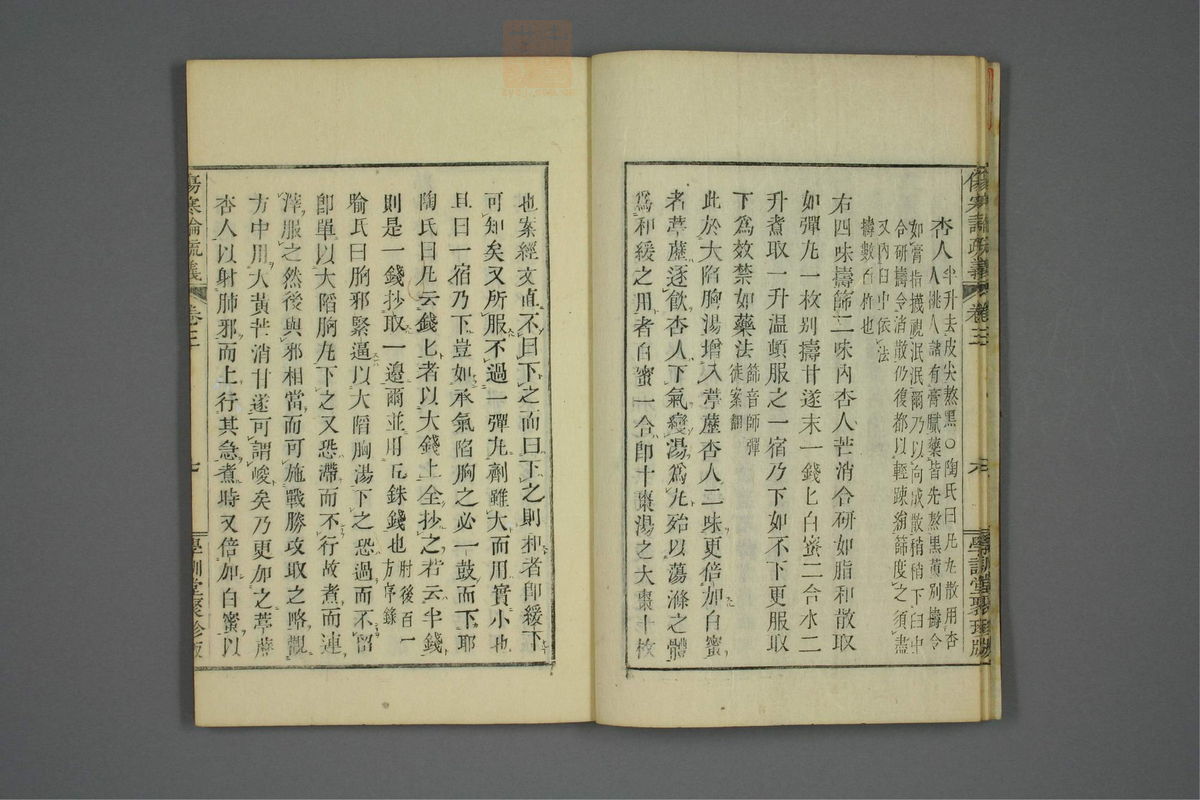 傷寒論疏義 卷三 六 學訓堂聚珍版
杏人半升去皮尖熬黑○陶氏曰凡丸散用杏
人桃人諸有膏膩藥皆先熬黃黑別擣令
如膏指㩢視泯泯爾乃以向成散稍稍下臼中
合研擣令消散仍復都以輕疎絹篩度之須盡
又內臼中依法
擣數百杵也
右四味擣篩二味內杏人芒消合研如脂和散取
如彈丸一枚別擣甘遂末一錢匕白蜜二合水二
升煮取一升温頓服之一宿乃下如不下更服取
下爲效禁如藥法篩音師彈
徒案翻
此於大陷胸湯增入葶藶杏人二味更倍加白蜜
者葶藶逐飲杏人下氣變湯爲丸殆以蕩滌之體
爲和緩之用者白蜜一合卽十棗湯之大棗十枚
也案經文直不曰下之而曰下之則和者卽緩下
可知矣又所服不過一彈丸劑雖大而用實小也
且曰一宿乃下豈如承氣陷胸之必一鼓而下耶
陶氏曰凡云錢匕者以大錢上全抄之若云半錢
則是一錢抄取一邊爾並用五銖錢也肘後百一
方序錄
喻氏曰胸邪緊逼以大陷胸湯下之恐過而不畱
卽單以大陷胸丸下之又恐滯而不行故煮而連
滓服之然後與邪相當而可施戰勝攻取之略觀
方中用大黃芒消甘遂可謂峻矣乃更加之葶藶
杏人以射肺邪而上行其急煮時又倍加白蜜以
傷寒論疏義 卷三 七 學訓堂聚珍版